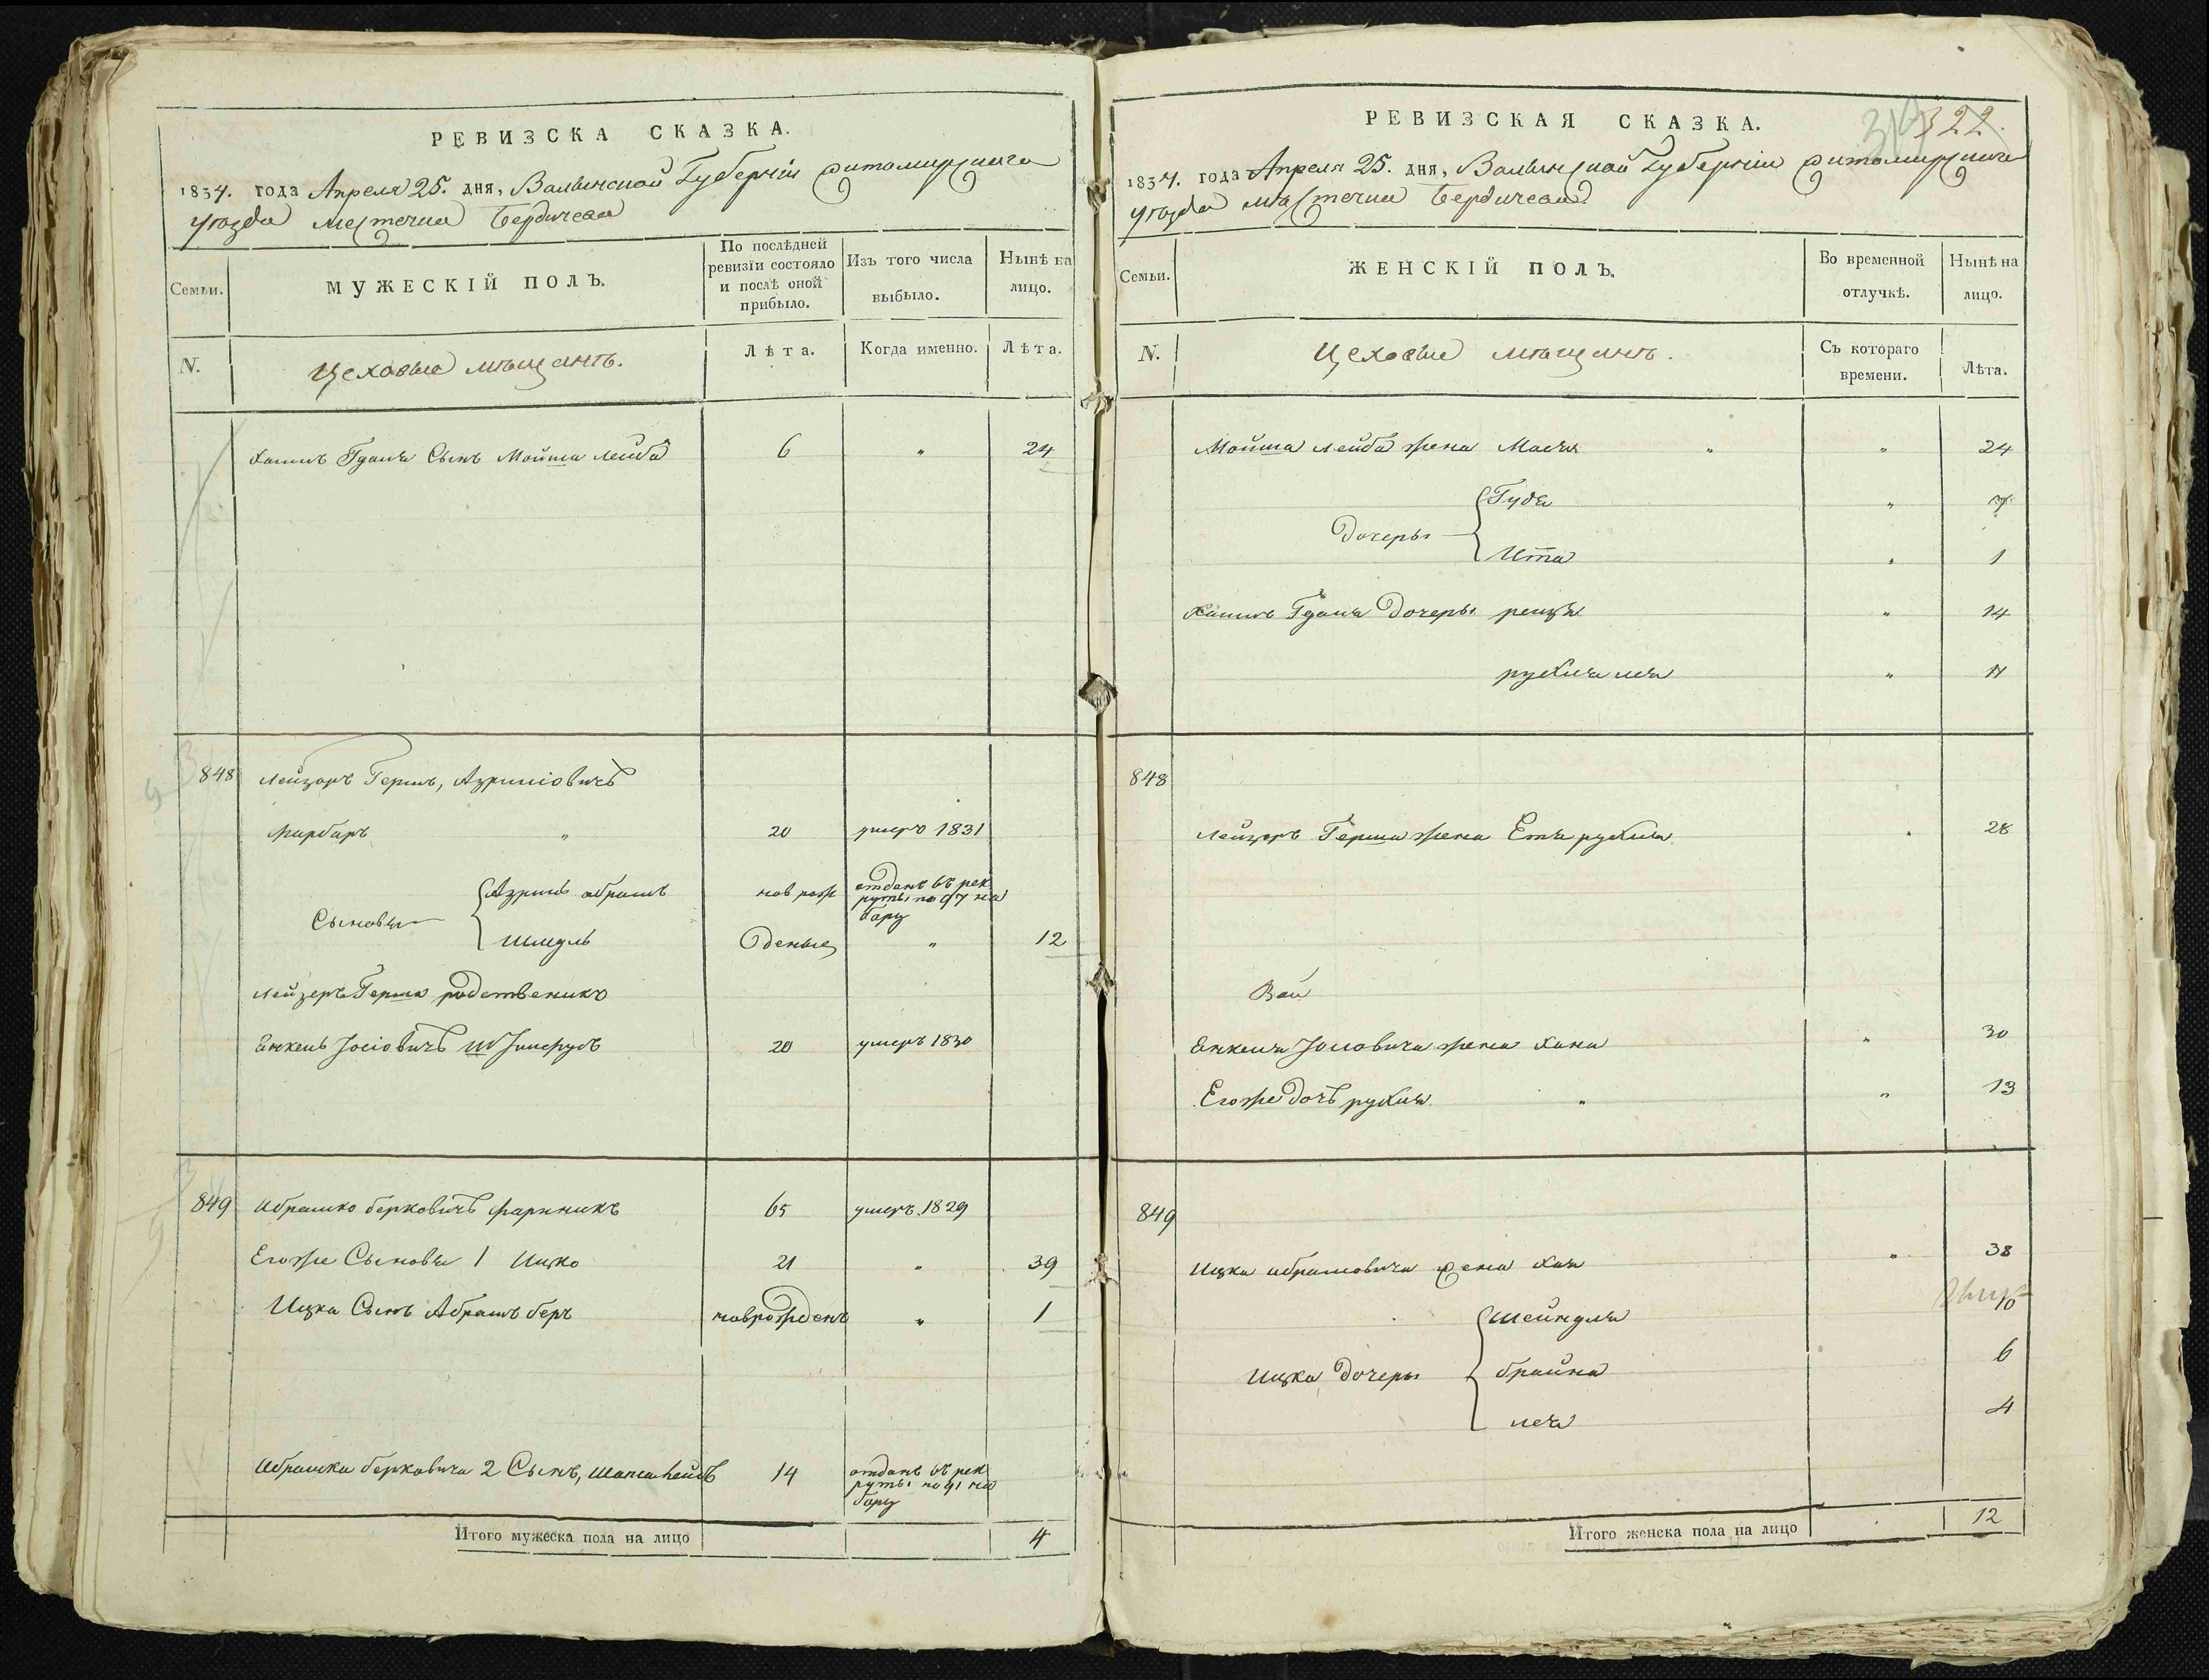 РЕВИЗСКА СКАЗКА.
1834. года Апреля 25. дня, Валынской Губернiи житомирскаго
уѣзда местечка Бердичева
Семьи.
МУЖЕСКІЙ ПОЛЪ.
По послѣдней
ревизіи состояло
и послѣ оной
прибыло.
Изъ того числа
выбыло.
Нынѣ на
лицо.
N.
Цеховые мѣщанъ.
Лѣта.
Когда именно.
Лѣта.
Сынъ Мойша лейба 6 " 24
848 лейзоръ Гершъ, Азриліовичъ
20 умеръ 1831
Сыновья
Азриль абрамъ нов рож отданъ въ рек
руты по 97 на
бору
Шмуль Деные " 12
лейзеръ Герша родственикъ
Енкель Іосіовичъ 20 умеръ 1830
849 Абрамко берковичъ 65 умеръ 1829
Егоже Сыновья 1 Ицко 21 " 39
Ицка Сынъ Абрамъ беръ новрожденъ " 1
Абрамка берковича 2 Сынъ, 14 отданъ въ рек
руты по 91 на
бору
Итого мужеска пола на лицо 4
РЕВИЗСКАЯ СКАЗКА.
322.
1834. года Апреля 25. дня, Валынской Губернiи житомирскаго
уѣзда мѣстечка Бердичева
Семьи.
ЖЕНСКІЙ ПОЛЪ.
Во временной
отлучкѣ.
Нынѣ на
лицо.
N.
Цеховые мѣщанъ.
Съ котораго
времени.
Лѣта.
Мойша лейба жена Мася " " 24
Дочеры
Гудя " 7
Ита " 1
Дочеры рейзя " 14
рухля лея " 11
848
лейзоръ Герша жена Етя рухля " 28
Енкеля Іосіовича жена хана " 30
Егоже дочъ рухля " " 13
849
Ицка абрамовича жена хая " 38
Ицка Дочеры
шейндля 10
брайна 6
лея 4
Итого женска пола на лицо 12